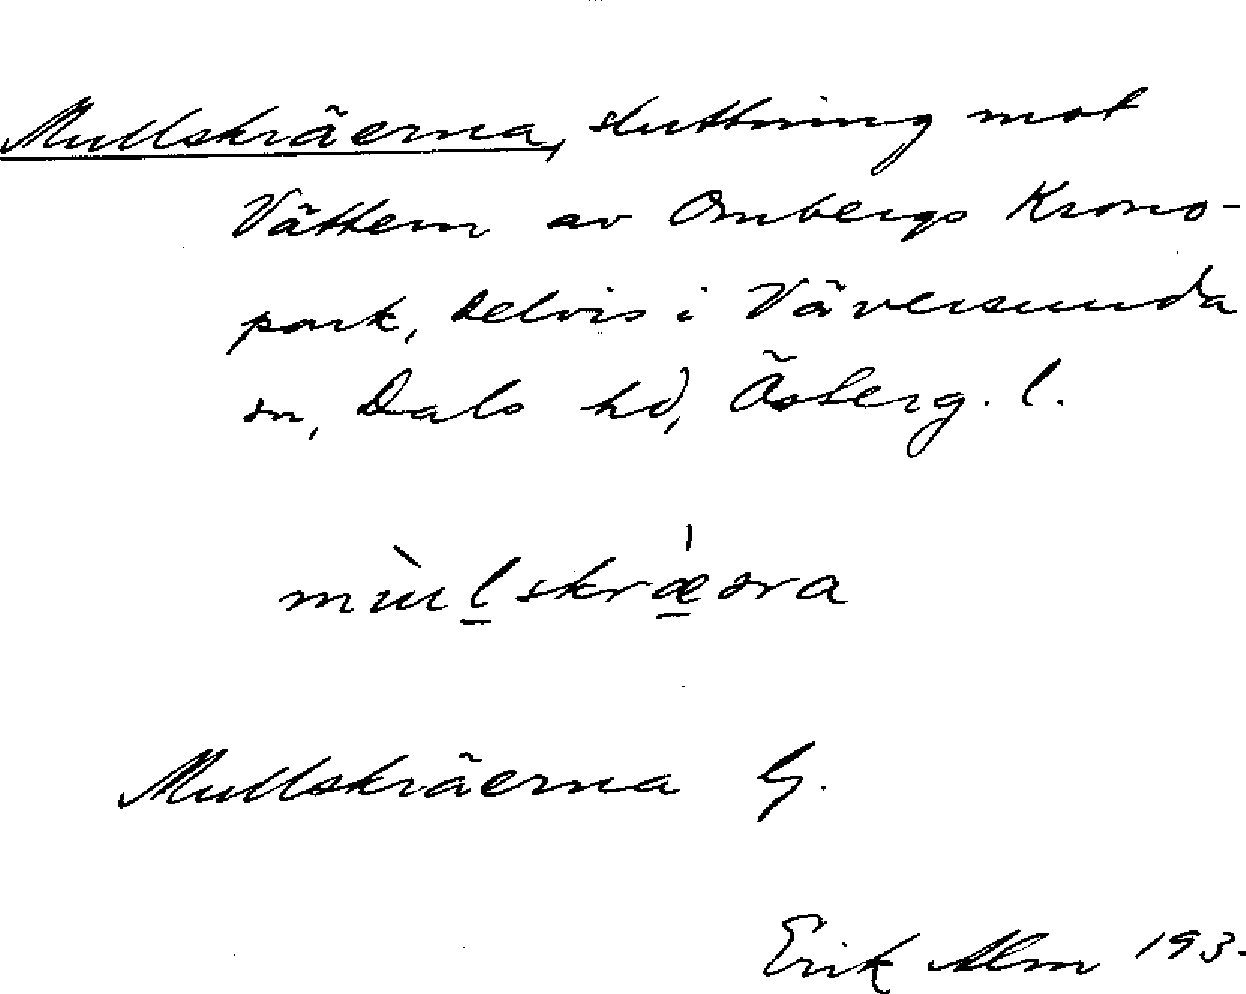 Mullskräerna, sluttning mot
Vättern av Ombergs Krono-
park, delvis i Väversunda
sn, Dals hd, Österg. l.
Mullskräerna G.
Erik Alm 193-